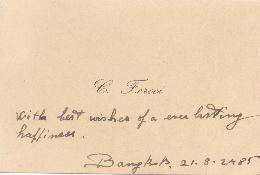 C. Feroci
with best wishes of a ever lasting
happiness.
Bangkok, 21-8-2485